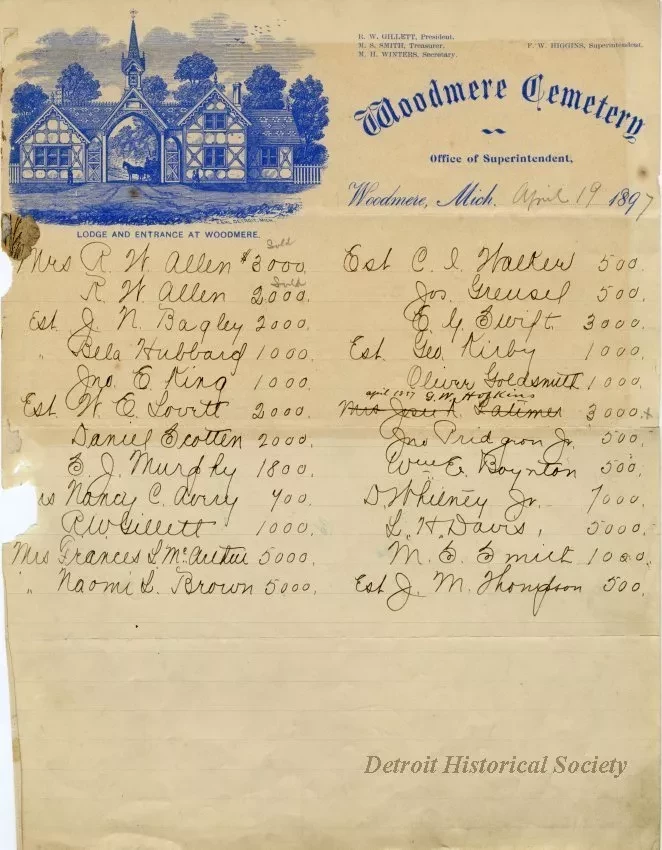 R. W. GILLETT, President.
M. S. SMITH, Treasurer.
M. H. WINTERS, Secretary.
F. W. HIGGINS, Superintendent.
Woodmere Cemetery
Office of Superintendent,
Woodmere, Mich. April 19 1897
LODGE AND ENTRANCE AT WOODMERE.
Sold
Mrs R. W. Allen $3000.
Sold
R. W. Allen 2000.
Est. J. N. Bagley 2000.
" Bela Hubbard 1000.
Jno. E. King 1000.
Est. W. E. Lovett 2000.
Daniel Scotten 2000.
S. J. Murphy 1800.
Nancy C. Avery 400.
R. W. Gillett 1000.
Mrs Frances L. McArthur 5000.
" Naomi L. Brown 5000.
Est C. I. Walker 500.
Jos. Greusel 500.
E. Y. Swift 3000.
Est. Geo. Kirby 1000.
Oliver Goldsmith 1000.
april 1897 G. W. Hopkins
Mrs Latimer 3000.x
Jno Pridgeon Jr. 500.
Wm E. Boynton 500.
D. Whitney Jr. 7000.
L. H. Davis, 5000.
M. S. Smith 1000.
Est J. M. Thompson 500.
Detroit Historical Society